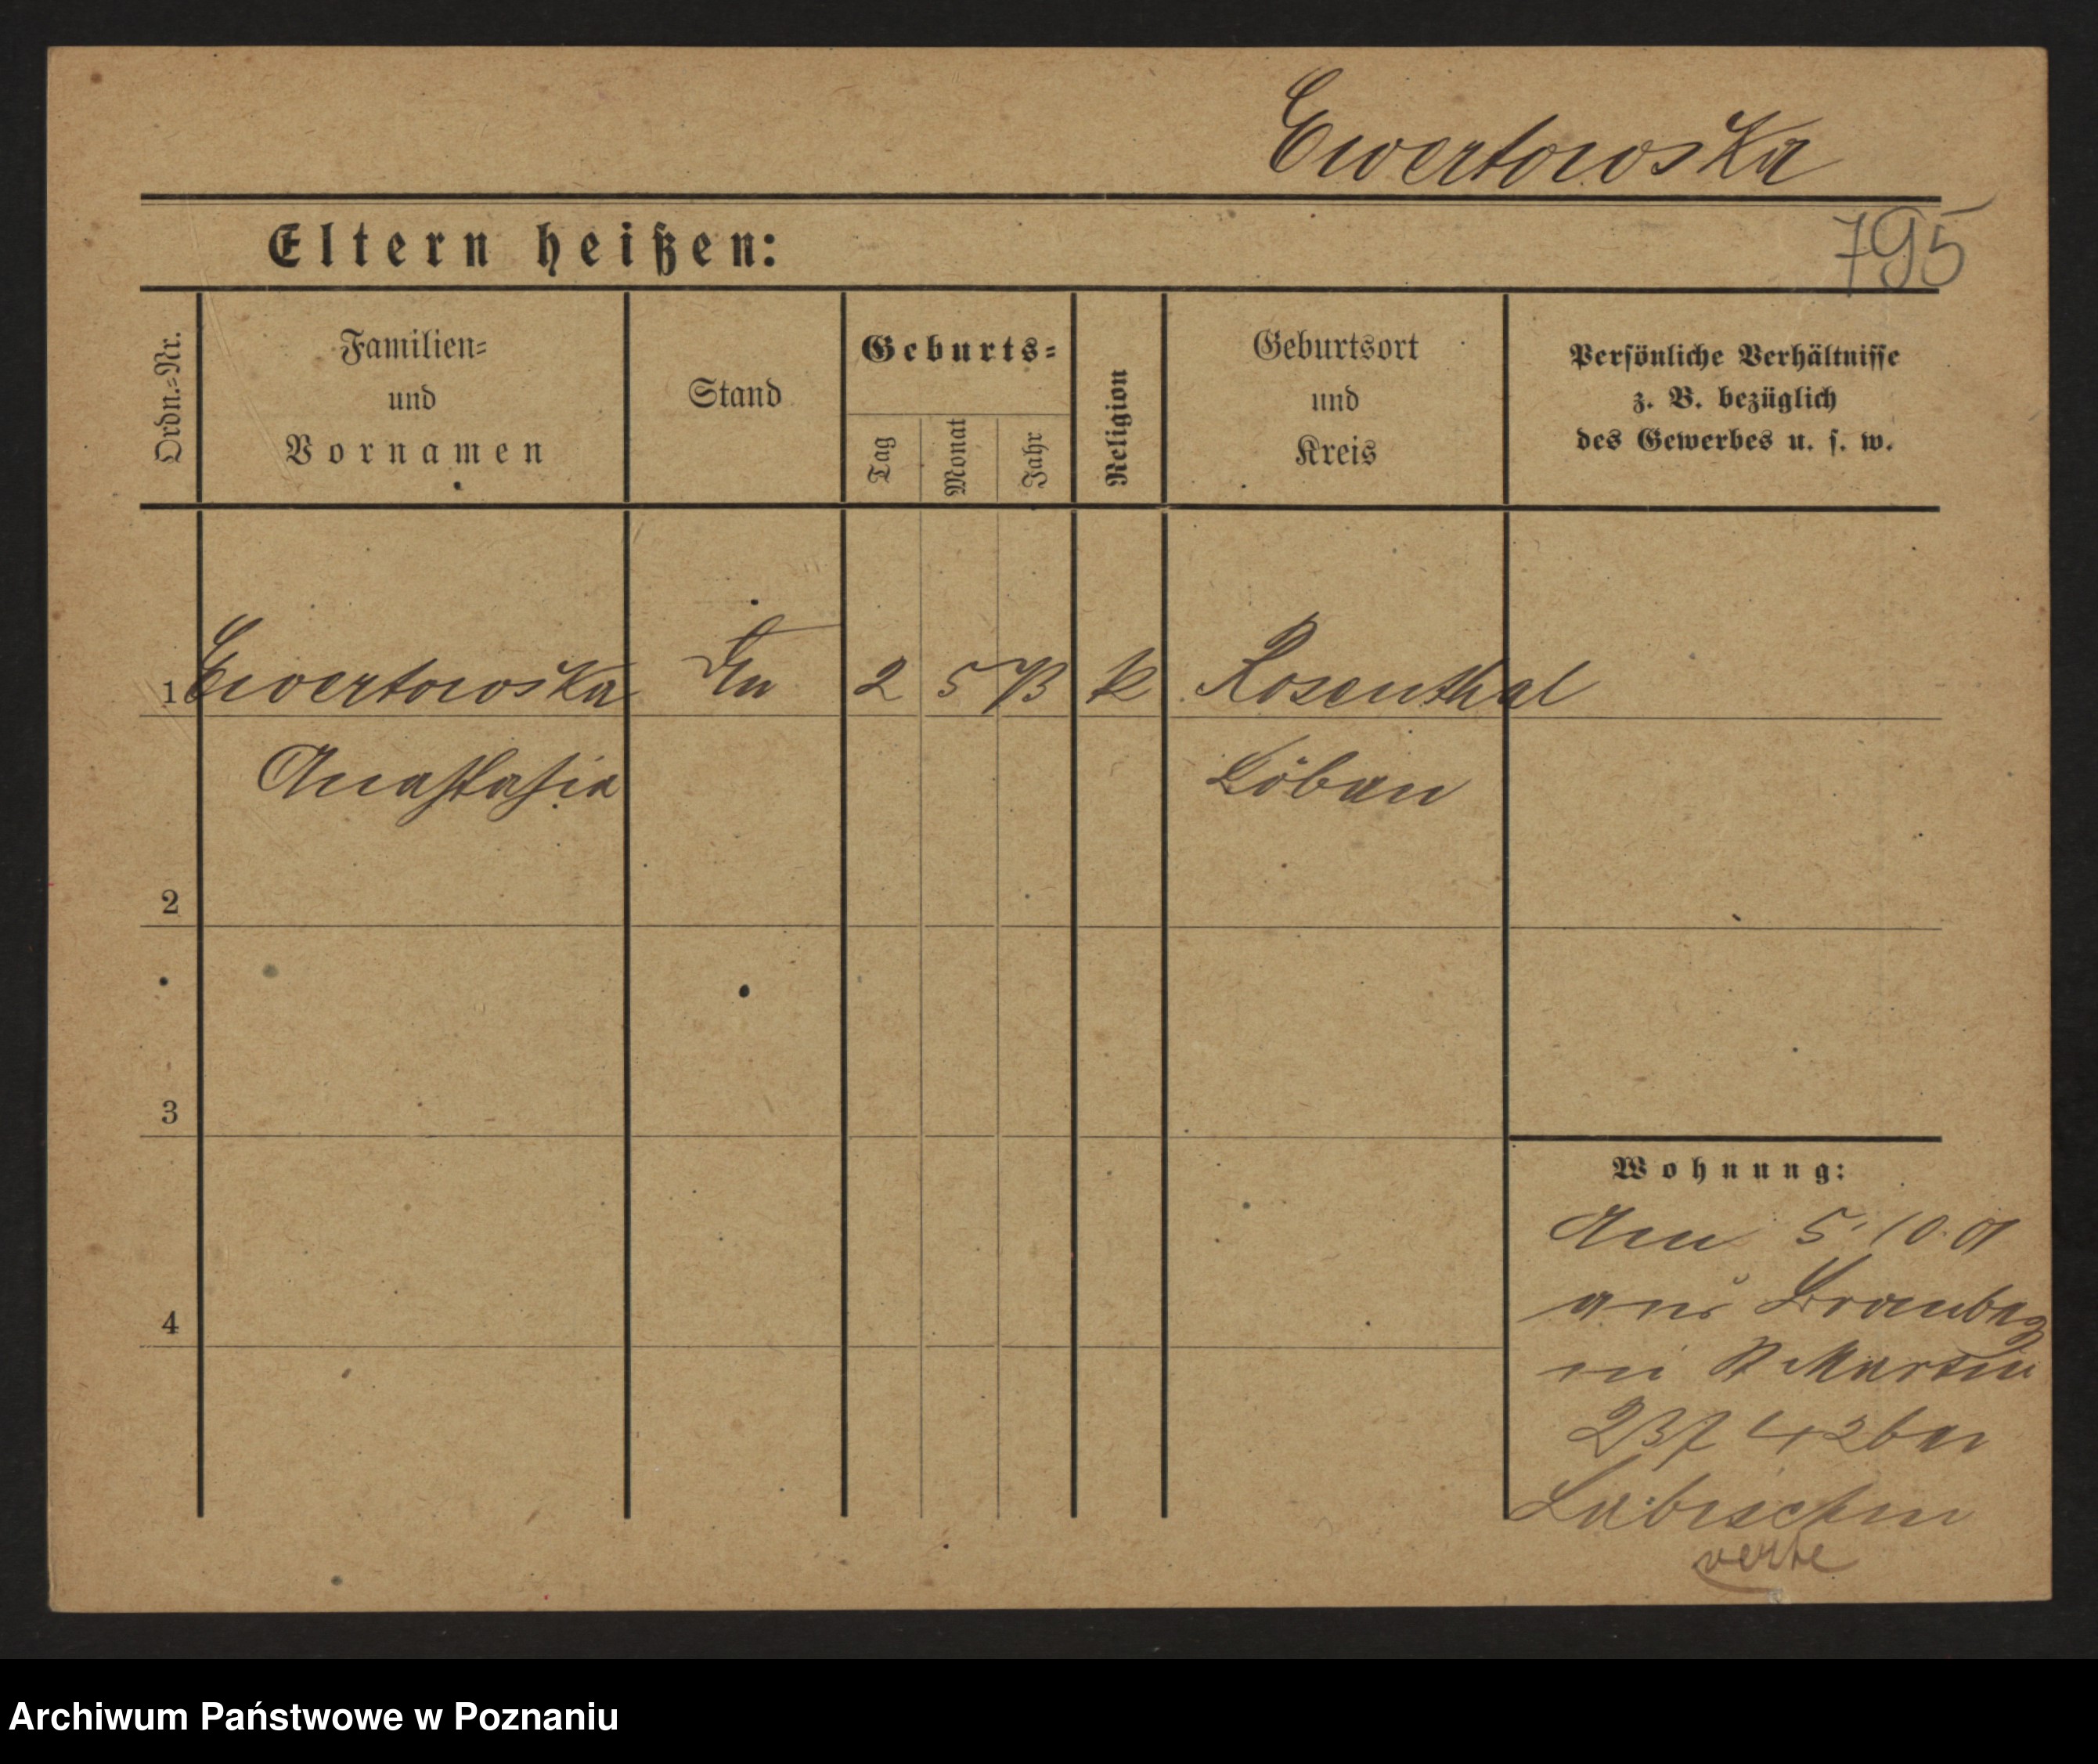 Ewertowska
795
Eltern heißen:
Ordn.-Nr.
Familien-
und
Vornamen
Stand
Geburts-
Tag
Monat
Jahr
Religion
Geburtsort
und
Kreis
Persönliche Verhältnisse
z. B. bezüglich
des Gewerbes u. s. w.
1 Ewertowska 2 5 73 k Rosenthal
Anastasia Löbau
2
3
4
Wohnung:
Am 5.10.01
aus Bromberg
in St Martin
bei
Labischin
verte
Archiwum Państwowe w Poznaniu